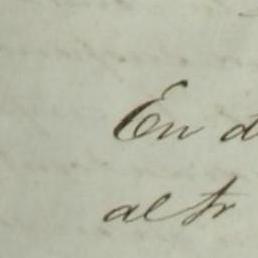 En d
al tr